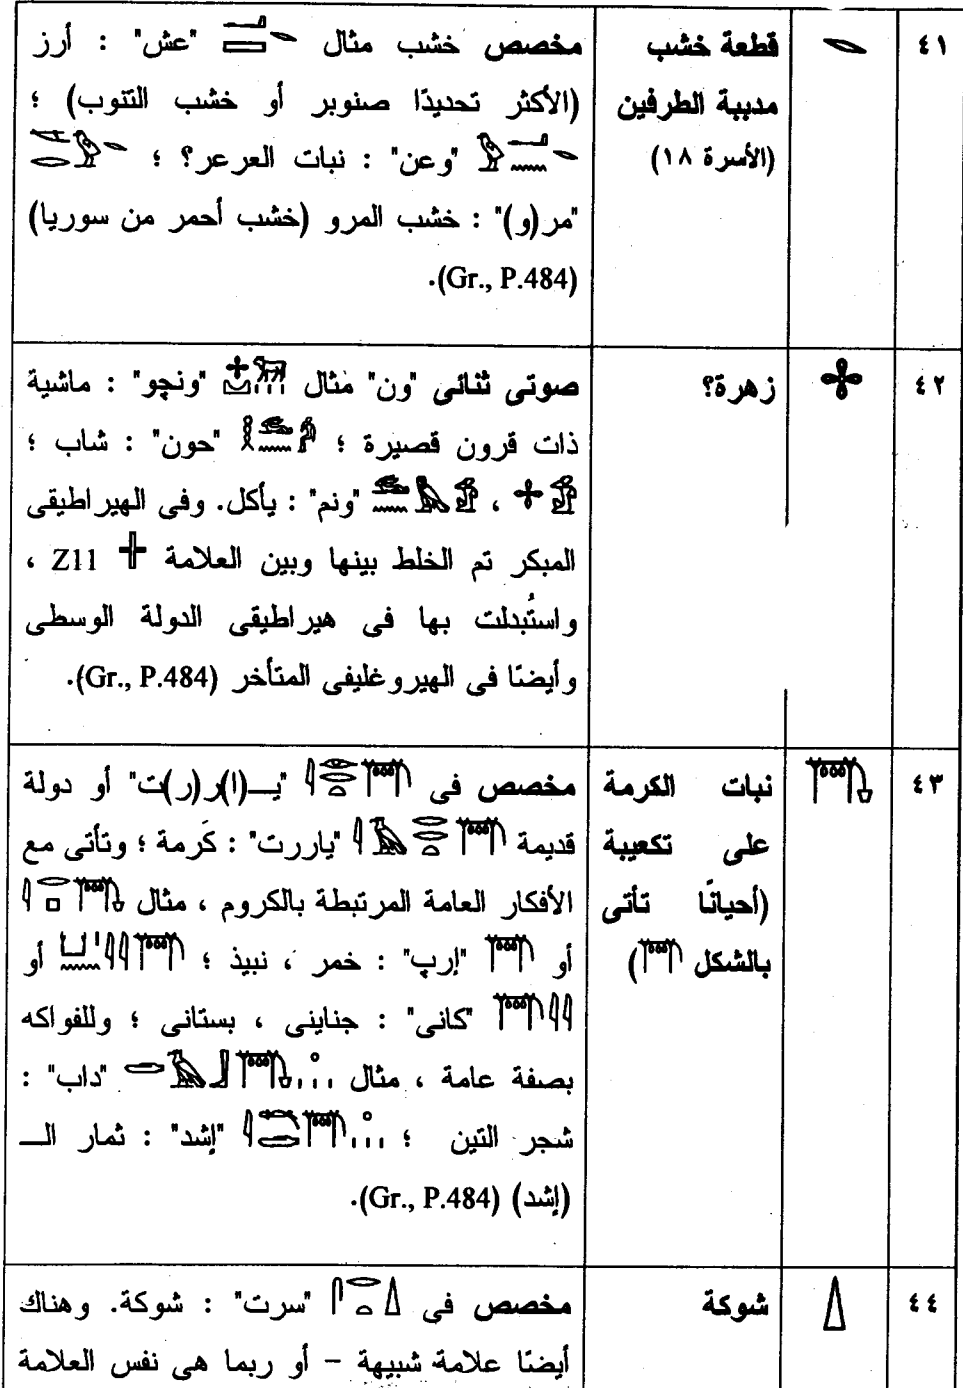 ٤١ قطعة خشب مخصص خشب مثال "عش" : أرز
مدببة الطرفين (الأكثر تحديدًا صنوبر أو خشب التنوب) ؛
(الأسرة ١٨) "وعن" : نبات العرعر؟ ؛
"مر(و)" : خشب المرو (خشب أحمر من سوريا)
(Gr., P.484).
٤٢ زهرة؟ صوتى ثنائى "ون" مثال "ونچو" : ماشية
ذات قرون قصيرة ؛ "حون" : شاب ؛
، "ونم" : يأكل. وفى الهيراطيقى
المبكر تم الخلط بينها وبين العلامة Z11 ،
واستُبدلت بها فى هيراطيقى الدولة الوسطى
وأيضًا فى الهيروغليفى المتأخر (Gr., P.484).
٤٣ نبات الكرمة مخصص فى "يـــ(ا)ر(ر)ت" أو دولة
على تكعيبة قديمة "ياررت" : كَرمة ؛ وتأتى مع
(أحيانًا تأتى الأفكار العامة المرتبطة بالكروم ، مثال
بالشكل ) أو "إرپ" : خمر ، نبيذ ؛ أو
"كانى" : جناينى ، بستانى ؛ وللفواكه
بصفة عامة ، مثال "داب" :
شجر التين ؛ "إشد" : ثمار الـــ
(إشد) (Gr., P.484).
٤٤ شوكة مخصص فى "سرت" : شوكة. وهناك
أيضًا علامة شبيهة – أو ربما هى نفس العلامة